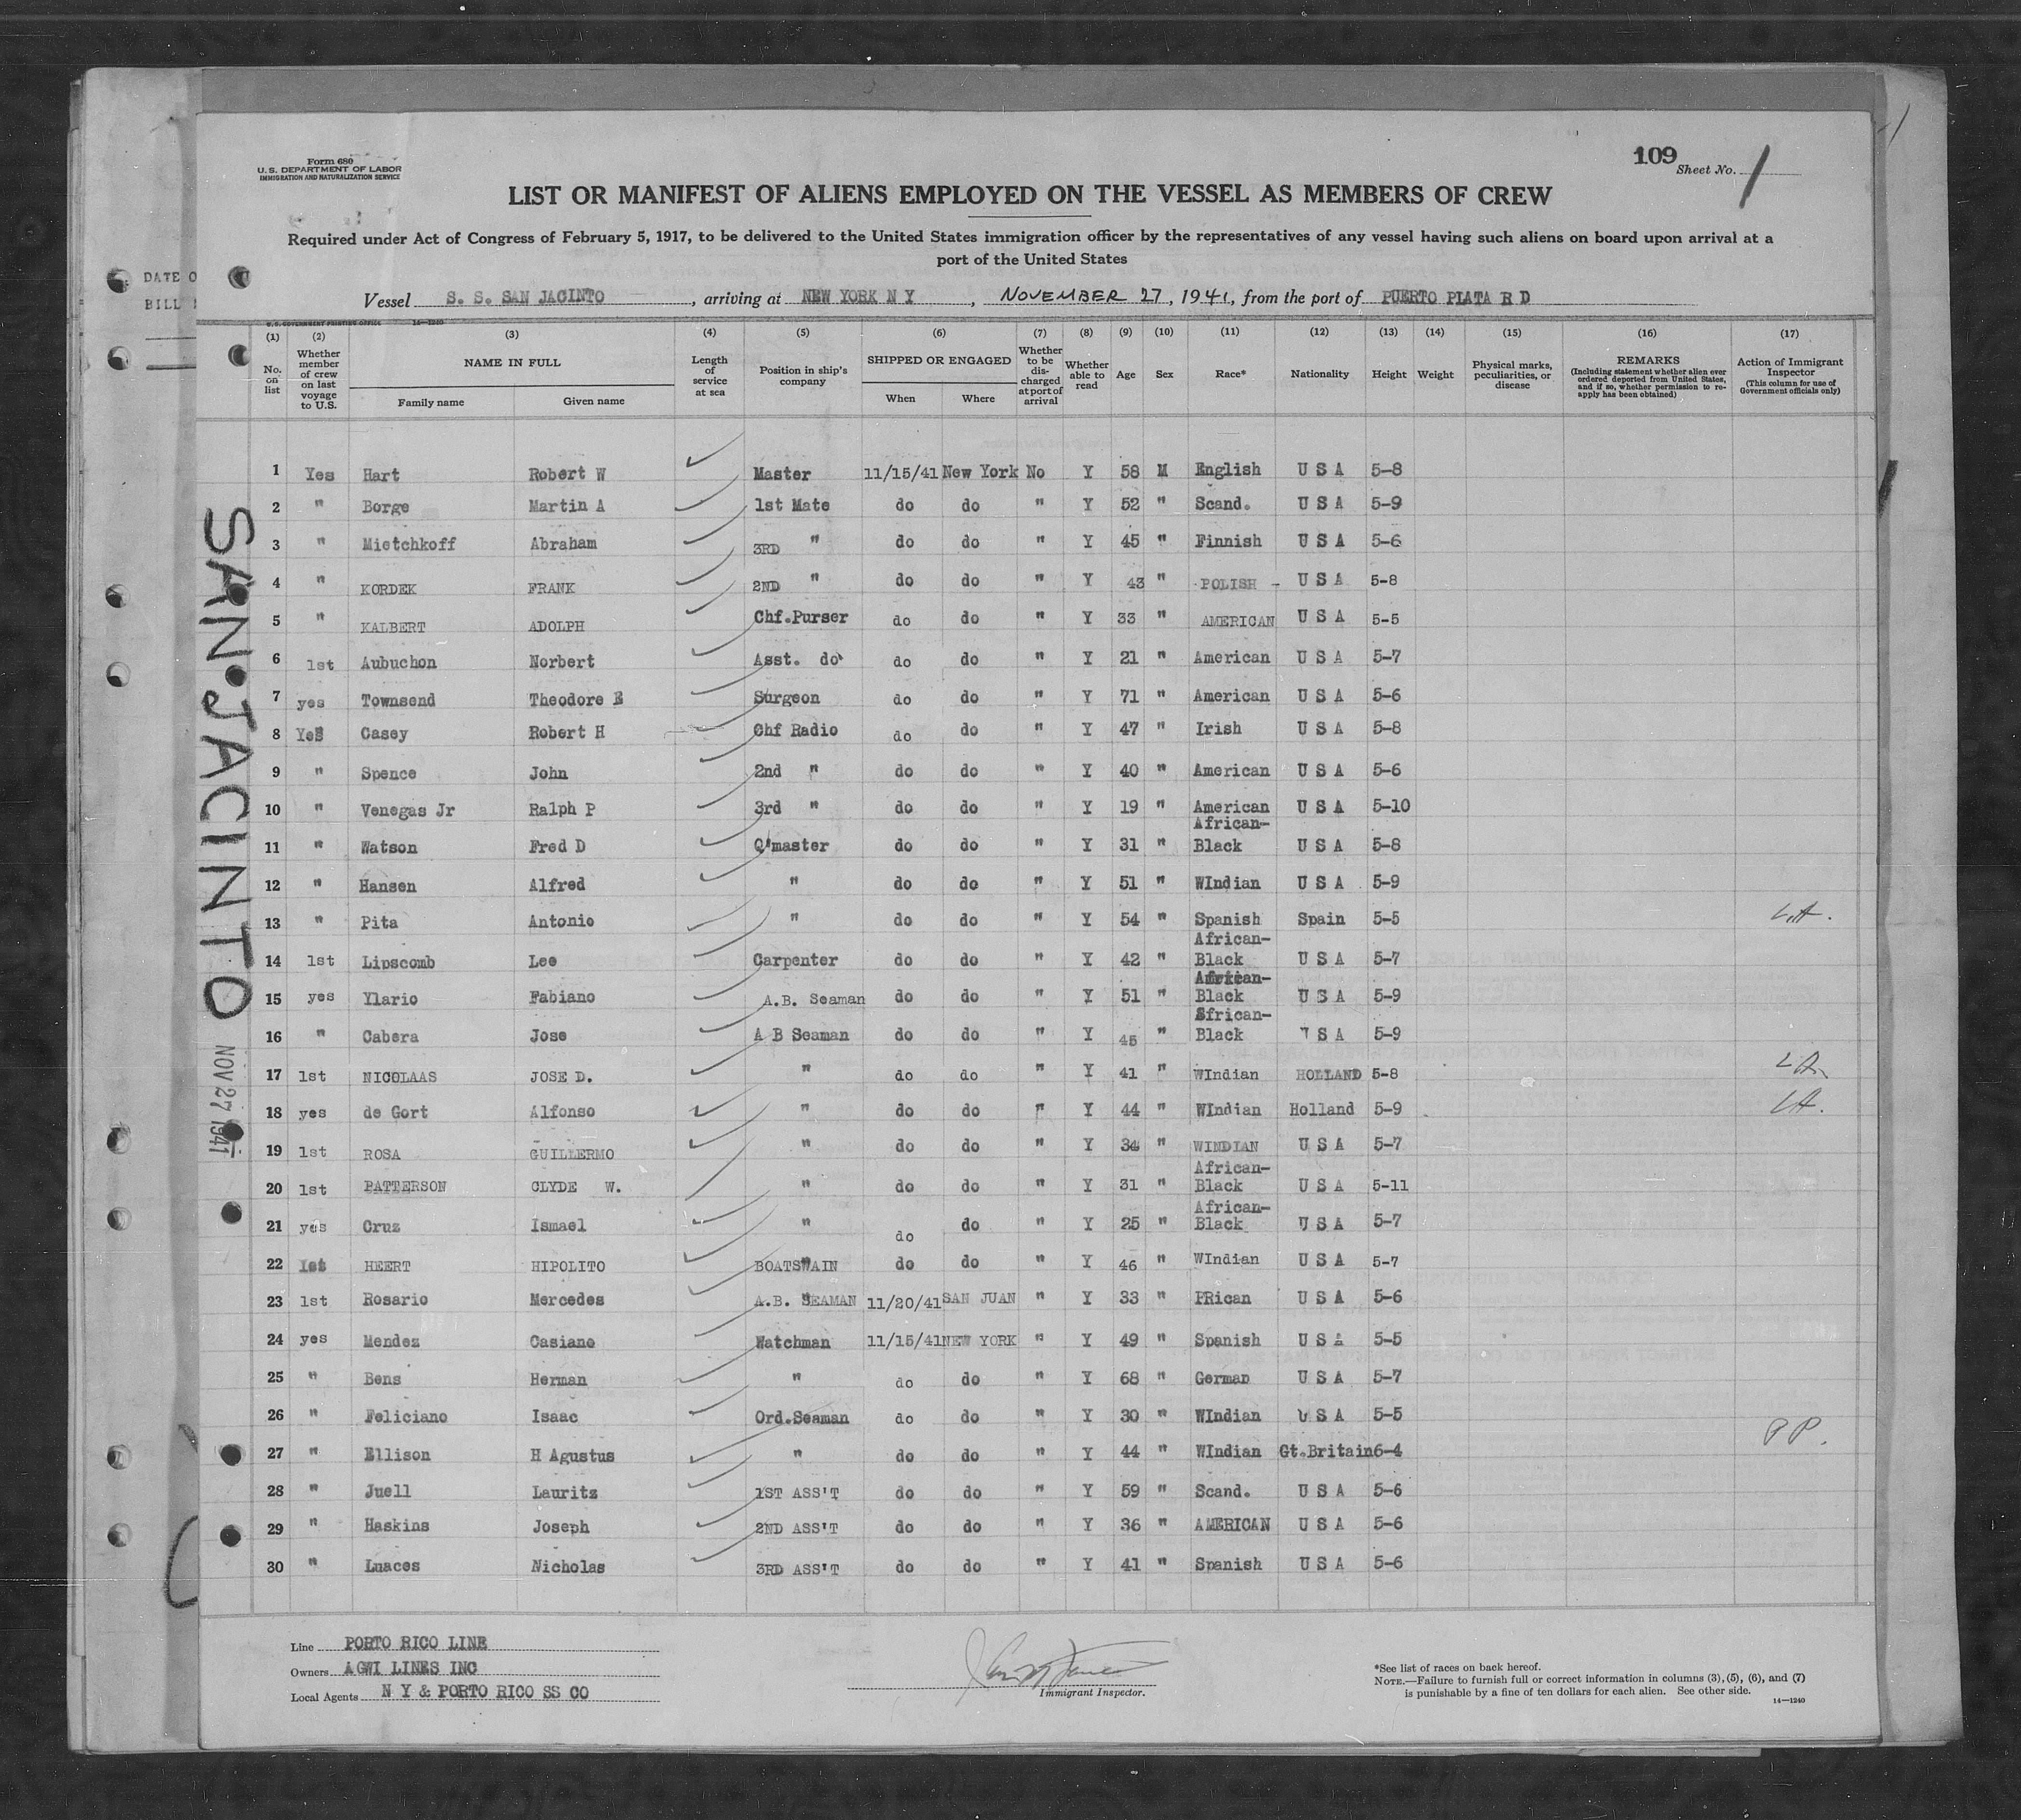 Form 680
U.S. DEPARTMENT OF LABOR
IMMIGRATION AND NATURALIZATION SERVICE
109 Sheet No. 1
LIST OR MANIFEST OF ALIENS EMPLOYED ON THE VESSEL AS MEMBERS OF CREW
Required under Act of Congress of February 5, 1917, to be delivered to the United States immigration officer by the representatives of any vessel having such aliens on board upon arrival at a
port of the United States
DATE O
BILL
Vessel S. S. SAN JACINTO, arriving at NEW YORK N Y, NOVEMBER 27, 1941, from the port of PUERTO PLATA R D
U.S. GOVERNMENT PRINTING OFFICE 14—1240
(1) (2) (3) (4) (5) (6) (7) (8) (9) (10) (11) (12) (13) (14) (15) (16) (17)
No. on list Whether member of crew on last voyage to U.S. NAME IN FULL Family name Given name Length of service at sea Position in ship's company SHIPPED OR ENGAGED When Where Whether to be discharged at port of arrival Whether able to read Age Sex Race* Nationality Height Weight Physical marks, peculiarities, or disease REMARKS (Including statement whether alien ever ordered deported from United States, and if so, whether permission to re-apply has been obtained) Action of Immigrant Inspector (This column for use of Government officials only)
1 Yes Hart Robert W Master 11/15/41 New York No Y 58 M English U S A 5-8
2 " Borge Martin A 1st Mate do do " Y 52 " Scand. U S A 5-9
3 " Mietchkoff Abraham 3RD " do do " Y 45 " Finnish U S A 5-6
4 " KORDEK FRANK 2ND " do do " Y 43 " POLISH - U S A 5-8
5 " KALBERT ADOLPH Chf.Purser do do " Y 33 " AMERICAN U S A 5-5
6 1st Aubuchon Norbert Asst. do do do " Y 21 " American U S A 5-7
7 yes Townsend Theodore E Surgeon do do " Y 71 " American U S A 5-6
8 Yes Casey Robert H Chf Radio do do " Y 47 " Irish U S A 5-8
9 " Spence John 2nd " do do " Y 40 " American U S A 5-6
10 " Venegas Jr Ralph P 3rd " do do " Y 19 " American U S A 5-10
11 " Watson Fred D Q'master do do " Y 31 " African-Black U S A 5-8
12 " Hansen Alfred " do do " Y 51 " WIndian U S A 5-9
13 " Pita Antonio " do do " Y 54 " Spanish Spain 5-5 L.A.
14 1st Lipscomb Lee Carpenter do do " Y 42 " African-Black U S A 5-7
15 yes Ylario Fabiano A.B. Seaman do do " Y 51 " African-Black U S A 5-9
16 " Cabera Jose A B Seaman do do " Y 45 " African-Black U S A 5-9
17 1st NICOLAAS JOSE D. " do do " Y 41 " WIndian HOLLAND 5-8 LA.
18 yes de Gort Alfonso " do do " Y 44 " WIndian Holland 5-9 LA.
19 1st ROSA GUILLERMO " do do " Y 34 " WINDIAN U S A 5-7
20 1st PATTERSON CLYDE W. " do do " Y 31 " African-Black U S A 5-11
21 yes Cruz Ismael " do do " Y 25 " African-Black U S A 5-7
22 1st HEERT HIPOLITO BOATSWAIN do do " Y 46 " WIndian U S A 5-7
23 1st Rosario Mercedes A.B. SEAMAN 11/20/41 SAN JUAN " Y 33 " PRican U S A 5-6
24 yes Mendez Casiano Watchman 11/15/41 NEW YORK " Y 49 " Spanish U S A 5-5
25 " Bens Herman " do do " Y 68 " German U S A 5-7
26 " Feliciano Isaac Ord.Seaman do do " Y 30 " WIndian U S A 5-5
27 " Ellison H Agustus " do do " Y 44 " WIndian Gt.Britain 6-4 PP.
28 " Juell Lauritz 1ST ASS'T do do " Y 59 " Scand. U S A 5-6
29 " Haskins Joseph 2ND ASS'T do do " Y 36 " AMERICAN U S A 5-6
30 " Luaces Nicholas 3RD ASS'T do do " Y 41 " Spanish U S A 5-6
SAN JACINTO
NOV 27 1941
Line PORTO RICO LINE
Owners AGWI LINES INC
Local Agents N Y & PORTO RICO SS CO
Immigrant Inspector.
*See list of races on back hereof.
NOTE.—Failure to furnish full or correct information in columns (3), (5), (6), and (7)
is punishable by a fine of ten dollars for each alien. See other side.
14—1240